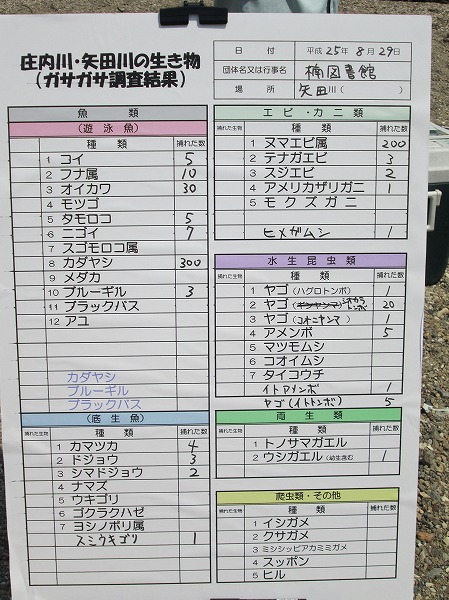 庄内川・矢田川の生き物
(ガサガサ調査結果)
日 付 平成25年8月29日
団体名又は行事名 楠図書館
場 所 矢田川( )
魚 類
(遊 泳 魚)
捕れた生物 種 類 捕れた数
1 コイ 5
2 フナ属 10
3 オイカワ 30
4 モツゴ
5 タモロコ 5
6 ニゴイ 7
7 スゴモロコ属
8 カダヤシ 300
9 メダカ
10 ブルーギル 3
11 ブラックバス
12 アユ
カダヤシ
ブルーギル
ブラックバス
(底 生 魚)
捕れた生物 種 類 捕れた数
1 カマツカ 4
2 ドジョウ 3
3 シマドジョウ 2
4 ナマズ
5 ウキゴリ
6 ゴクラクハゼ
7 ヨシノボリ属
スミウキゴリ 1
エ ビ ・ カ ニ 類
捕れた生物 種 類 捕れた数
1 ヌマエビ属 200
2 テナガエビ 3
3 スジエビ 2
4 アメリカザリガニ 1
5 モクズガニ
ヒメガムシ 1
水 生 昆 虫 類
捕れた生物 種 類 捕れた数
1 ヤゴ(ハグロトンボ) 1
2 ヤゴ(ギンヤンマ)シオカラトンボ 20
3 ヤゴ(コオニヤンマ) 1
4 アメンボ 5
5 マツモムシ
6 コオイムシ
7 タイコウチ
イトアメンボ 1
ヤゴ(イトトンボ) 5
両 生 類
捕れた生物 種 類 捕れた数
1 トノサマガエル
2 ウシガエル(幼生含む 1
爬虫類・その他
捕れた生物 種 類 捕れた数
1 イシガメ
2 クサガメ
3 ミシシッピアカミミガメ
4 スッポン
5 ヒル